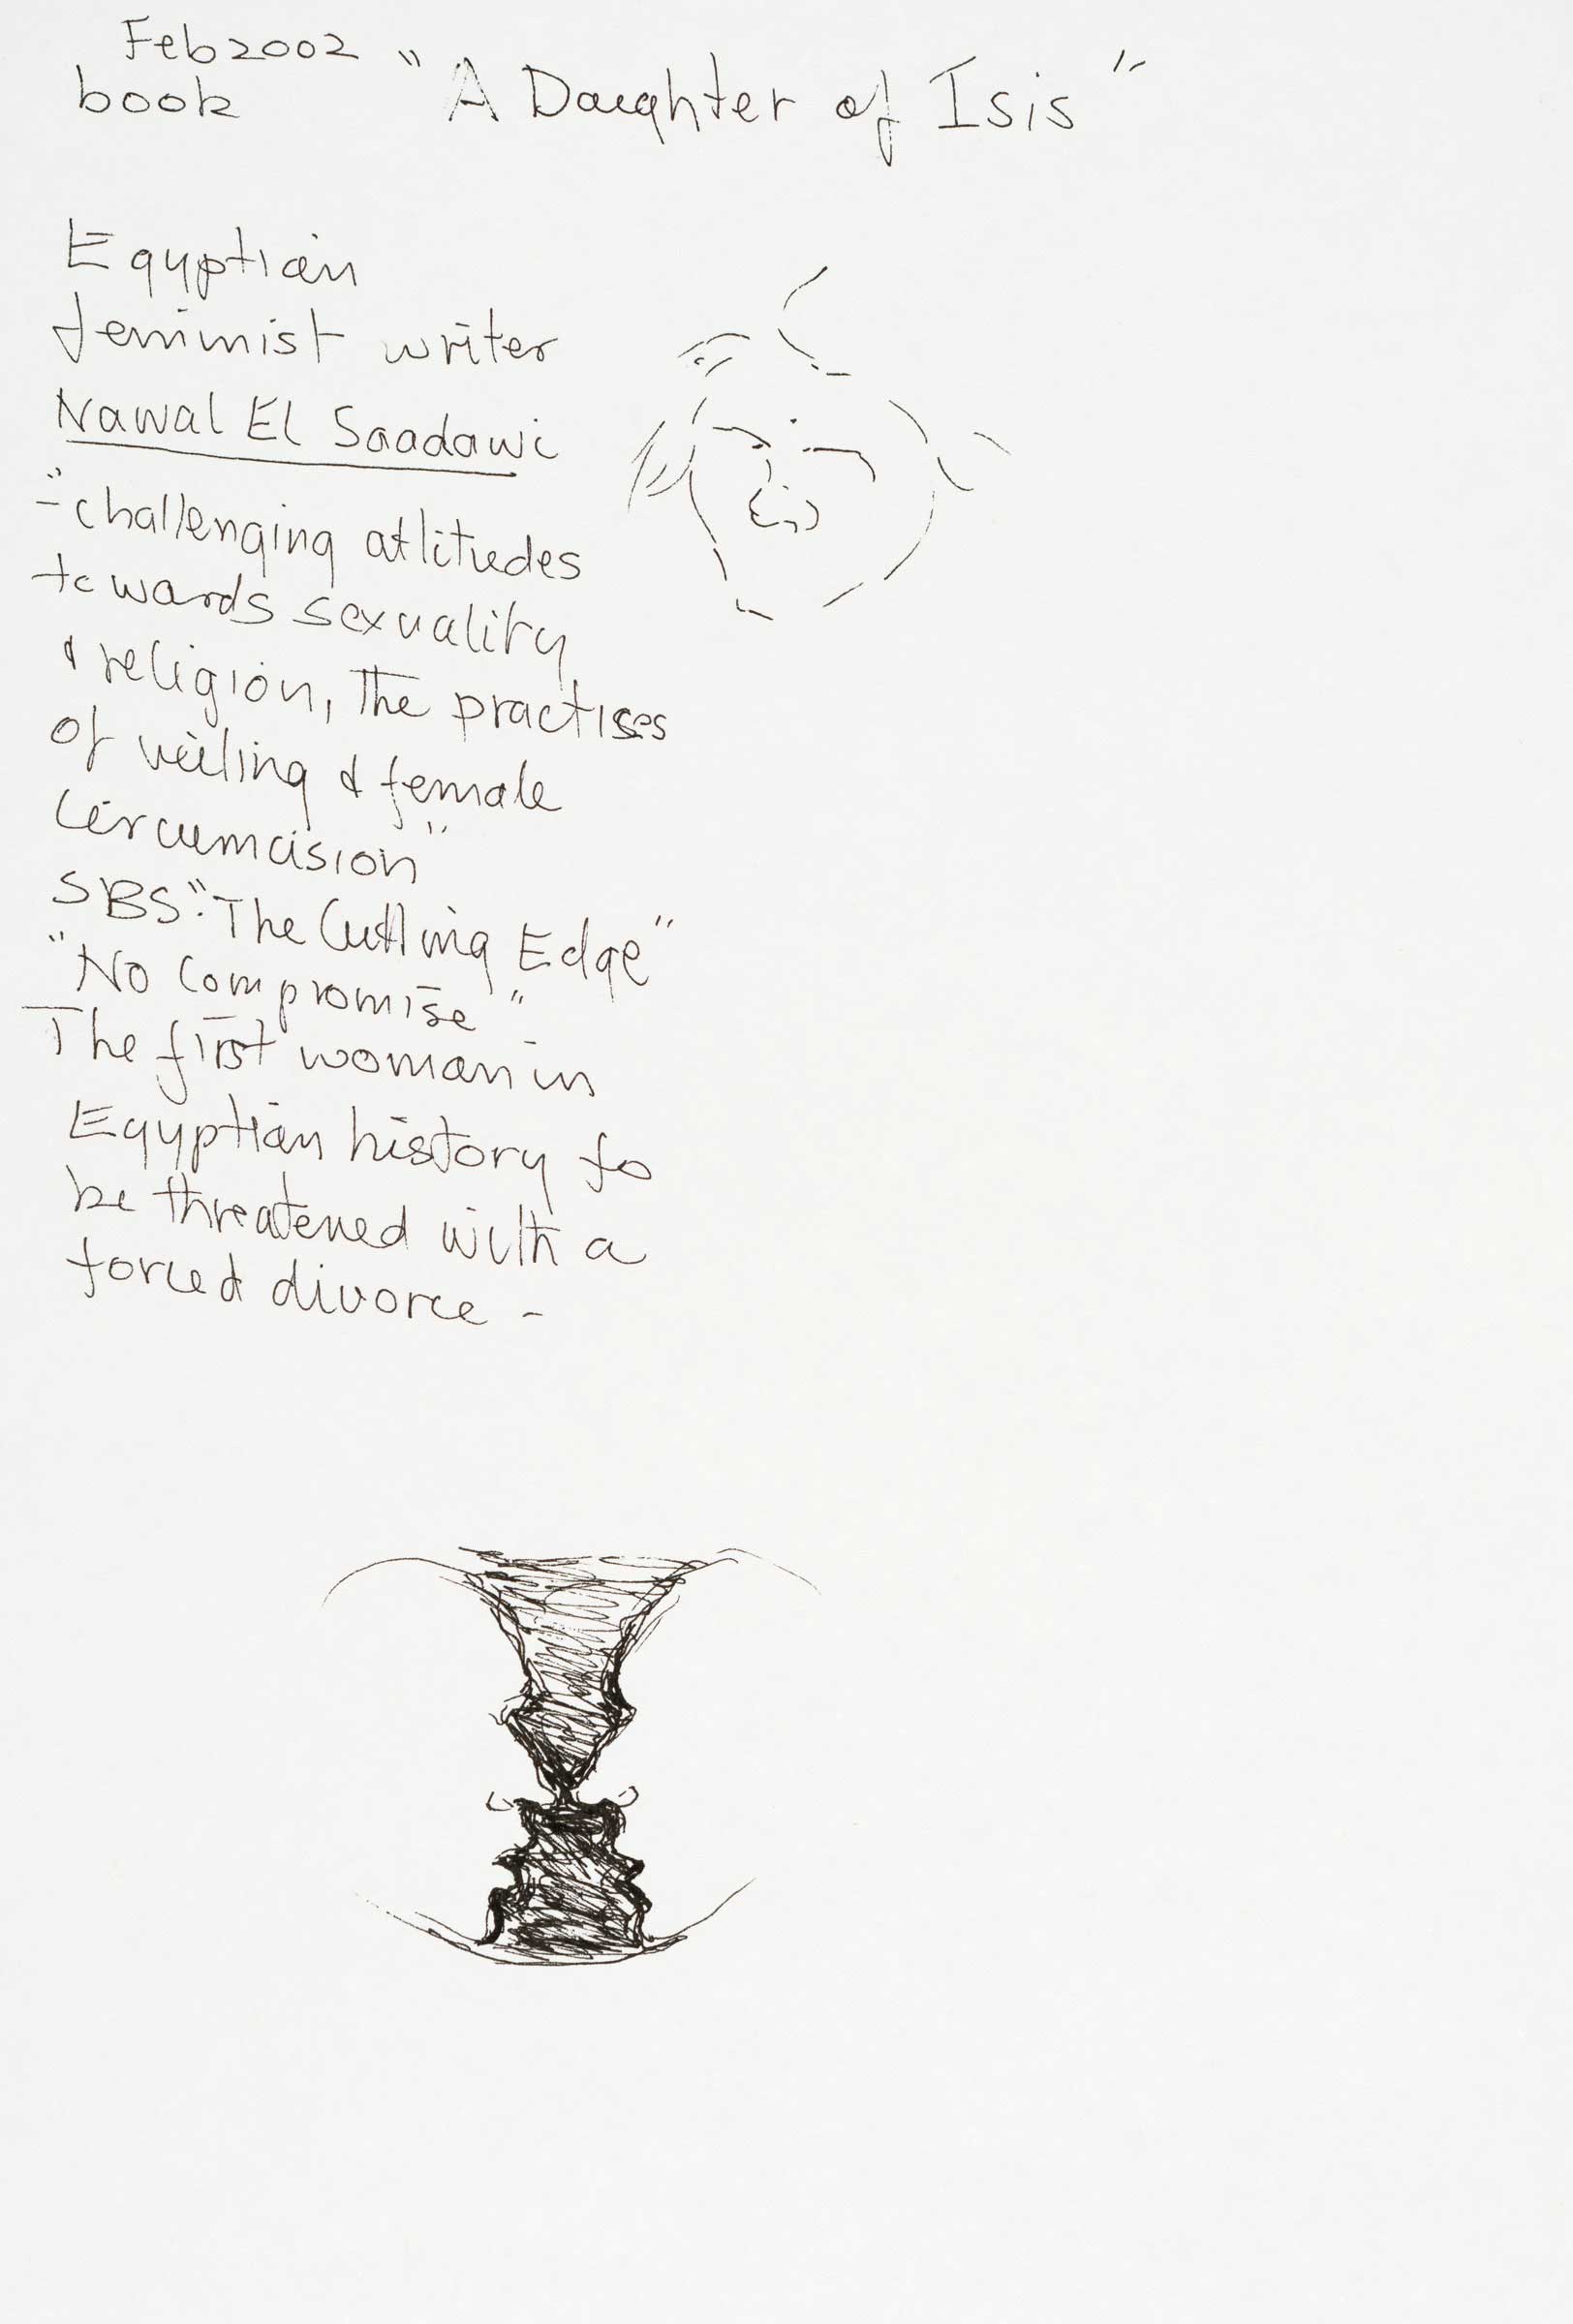 Feb 2002
book "A Daughter of Isis"
Egyptian
feminist writer
Nawal El Saadawi
"-challenging attitudes
towards sexuality
& religion, The practises
of veiling & female
circumcision"
SBS: "The Cutting Edge"
"No Compromise"
The first woman in
Egyptian history to
be threatened with a
forced divorce -